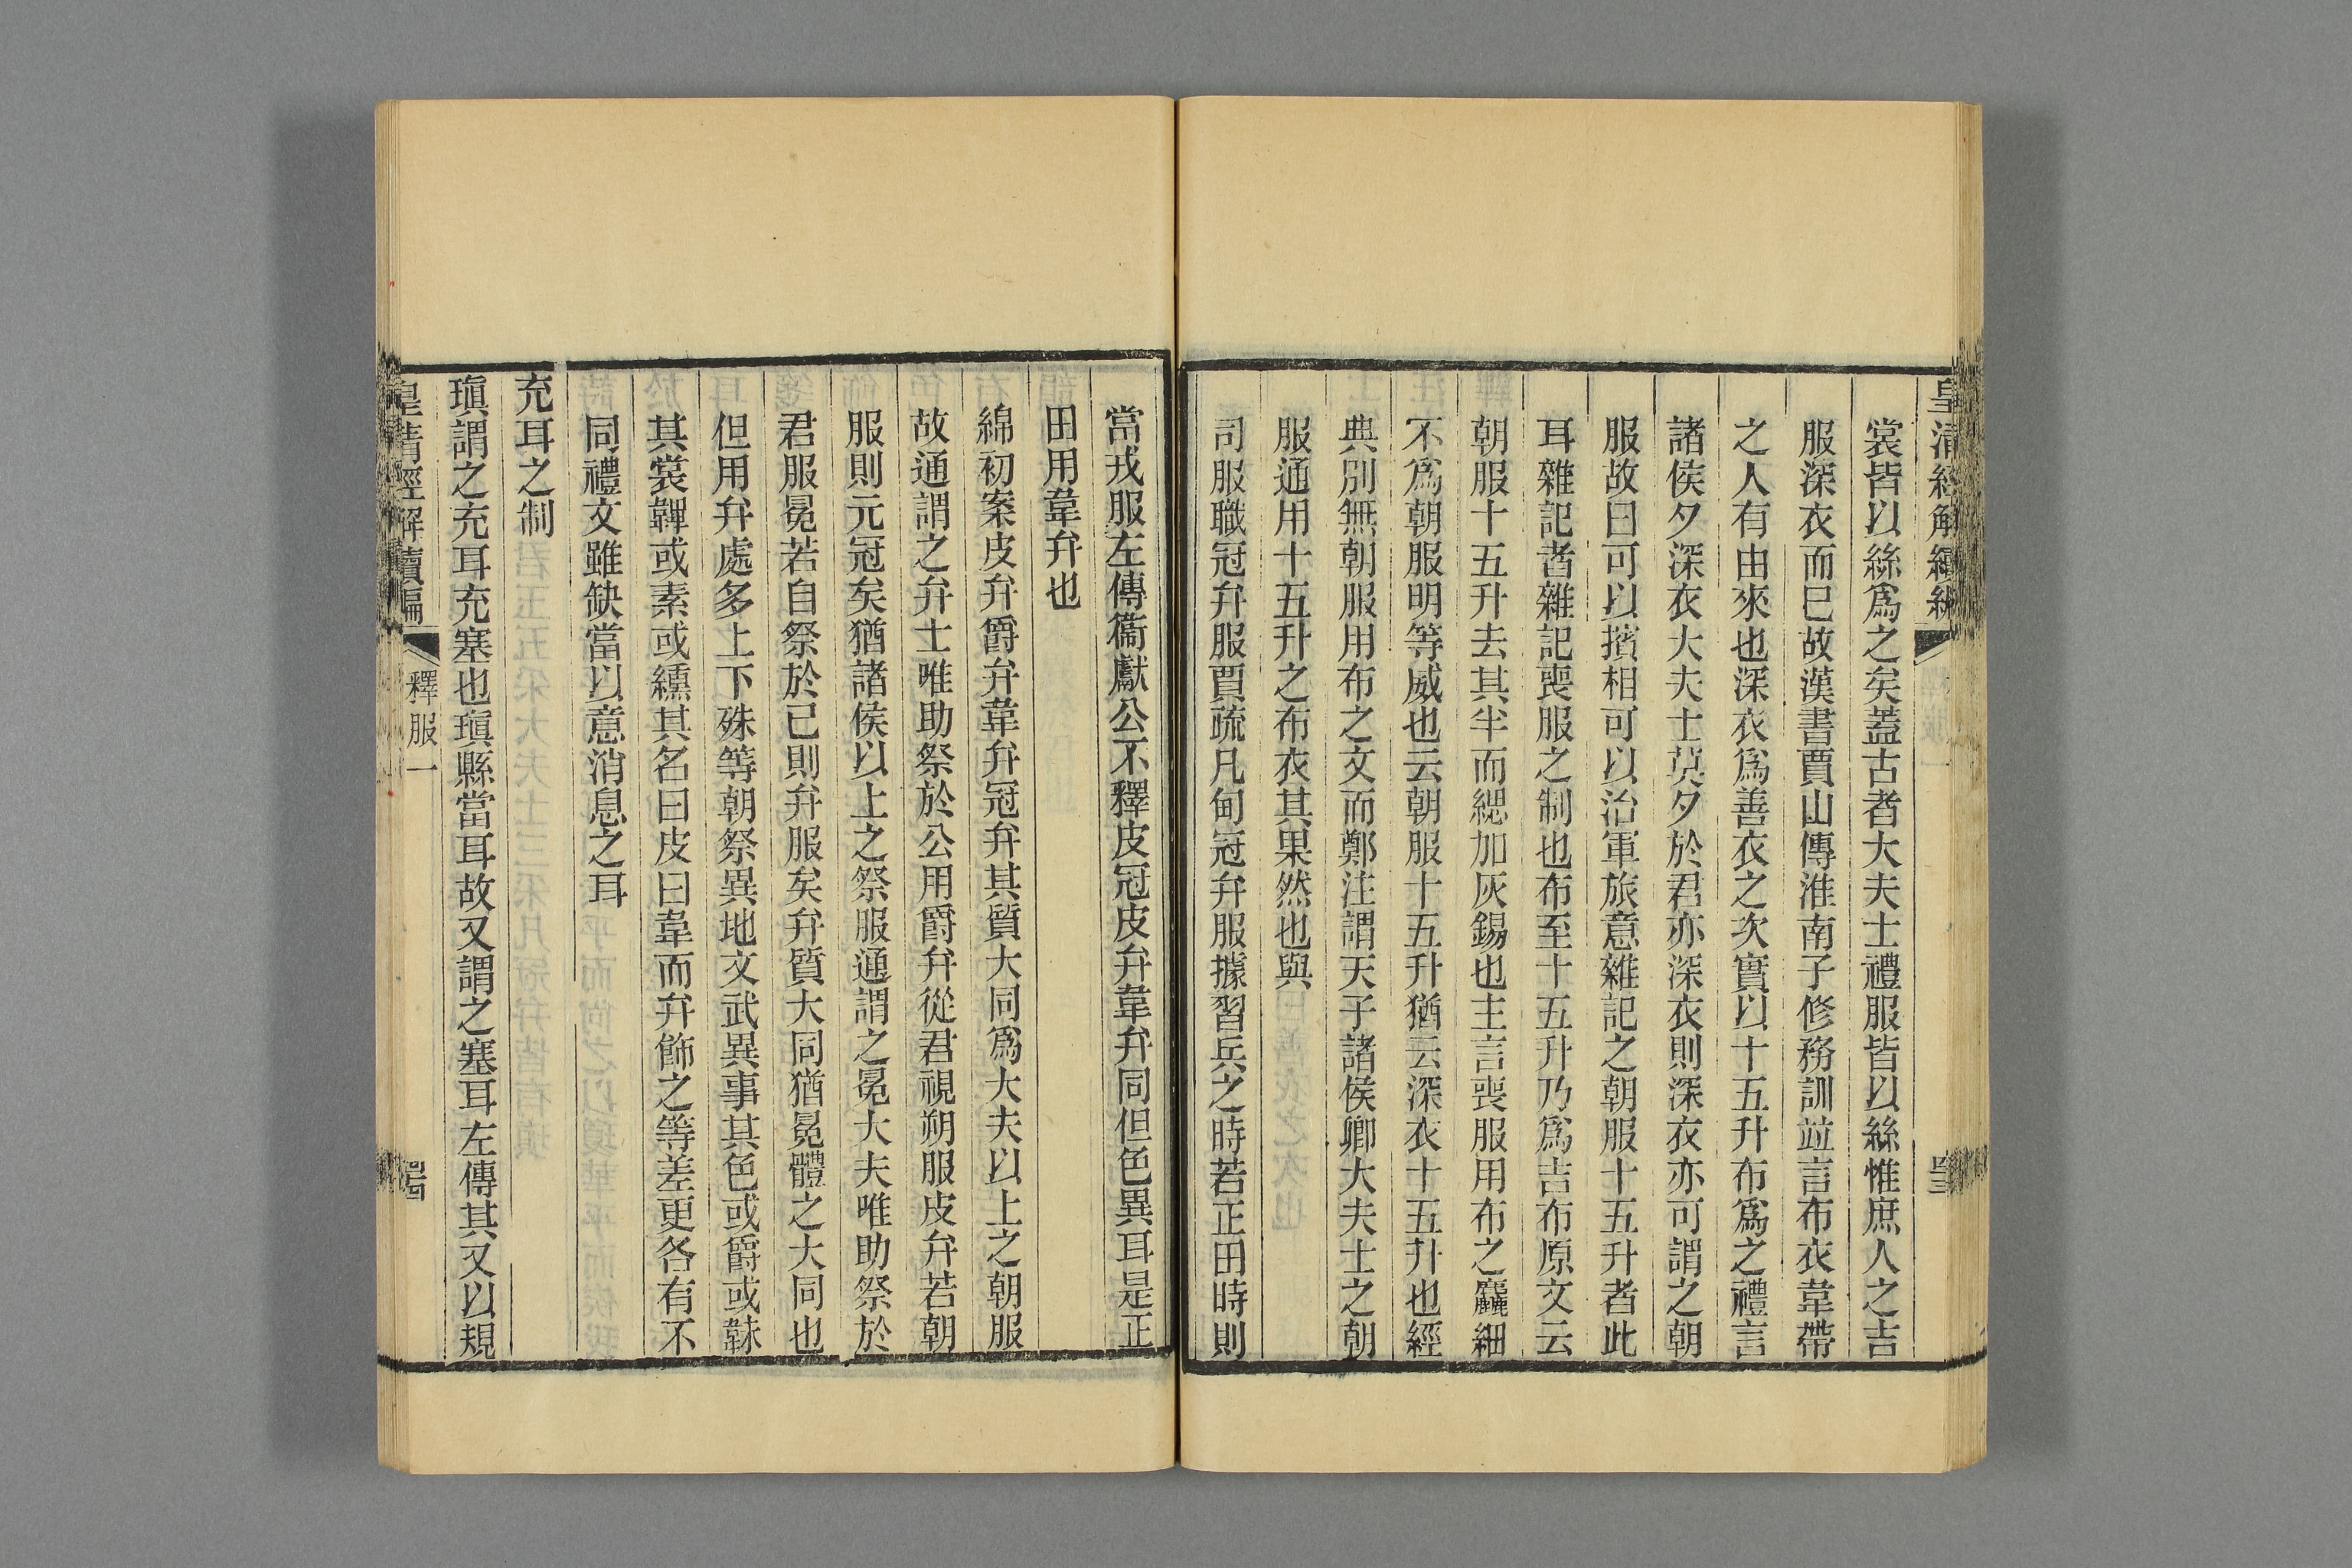 皇清經解續編
裳皆以絲爲之矣蓋古者大夫士禮服皆以絲惟庶人之吉
服深衣而已故漢書賈山傳淮南子修務訓竝言布衣韋帶
之人有由來也深衣爲善衣之次實以十五升布爲之禮言
諸侯夕深衣大夫士莫夕於君亦深衣則深衣亦可謂之朝
服故曰可以擯相可以治軍旅意雜記之朝服十五升者此
耳雜記者雜記喪服之制也布至十五升乃爲吉布原文云
朝服十五升去其半而緦加灰錫也主言喪服用布之麤細
不爲朝服明等威也云朝服十五升猶云深衣十五升也經
典別無朝服用布之文而鄭注謂天子諸侯卿大夫士之朝
服通用十五升之布衣其果然也與
司服職冠弁服賈疏凡甸冠弁服據習兵之時若正田時則
當戎服左傳衞獻公不釋皮冠皮弁韋弁同但色異耳是正
田用韋弁也
綿初案皮弁爵弁韋弁冠弁其質大同爲大夫以上之朝服
故通謂之弁士唯助祭於公用爵弁從君視朔服皮弁若朝
服則元冠矣猶諸侯以上之祭服通謂之冕大夫唯助祭於
君服冕若自祭於已則弁服矣弁質大同猶冕體之大同也
但用弁處多上下殊等朝祭異地文武異事其色或爵或韎
其裳韠或素或纁其名曰皮曰韋而弁飾之等差更各有不
同禮文雖缺當以意消息之耳
充耳之制
瑱謂之充耳充塞也瑱縣當耳故又謂之塞耳左傳其又以規
皇清經解續編
釋服一